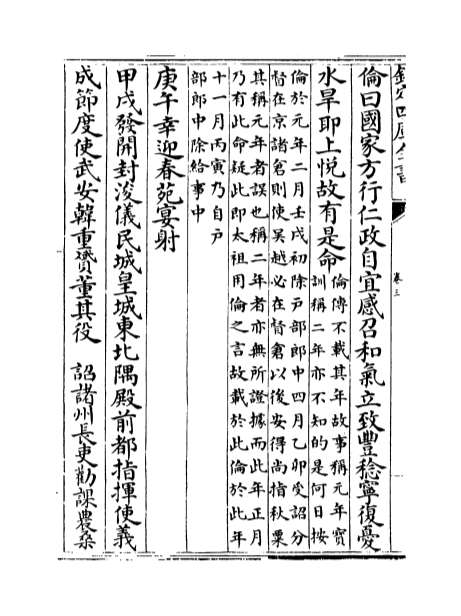 欽定四庫全書
卷三
倫曰國家方行仁政自宜感召和氣立致豐稔寧復憂
水旱耶上悅故有是命
倫傳不載其年故事稱元年寳
訓稱二年亦不知的是何日按
倫於元年二月壬戌初除戸部郎中四月乙卯受詔分
督在京諸倉則使吳越必在督倉以後安得尚指秋粟
其稱元年者誤也稱二年者亦無所證據而此年正月
乃有此命疑此即太祖用倫之言故載於此倫於此年
十一月丙寅乃自戸
部郎中除給事中
庚午幸迎春苑宴射
甲戌發開封浚儀民城皇城東北隅殿前都指揮使義
成節度使武安韓重贇董其役 詔諸州長吏勸課農桑